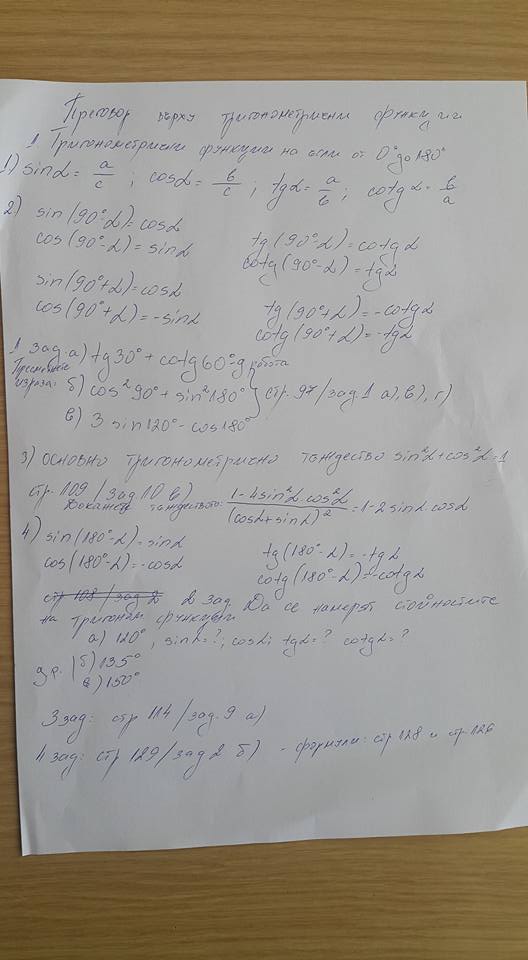 Преговор върху тригонометрични функции
1 Тригонометрични функции на ъгли от 0° до 180°
1) sinα = a/c ; cosα = b/c ; tgα = a/b ; cotgα = b/a
2) sin(90°-α)=cosα
cos(90°-α)=sinα
tg(90°-α)=cotgα
cotg(90°-α)=tgα
sin(90°+α)=cosα
cos(90°+α)=-sinα
tg(90°+α)=-cotgα
cotg(90°+α)=-tgα
1 зад. а) tg30°+cotg60°-д работа
Пресметнете израза: б) cos²90°+sin²180° } стр. 97/зад. 1 а), в), г)
в) 3 sin120°-cos180°
3) Основно тригонометрично тъждество sin²α+cos²α=1
стр. 109/зад 10 в)
Докажете тъждеството: 1-4sin²α.cos²α/(cosα+sinα)² = 1-2 sinα.cosα
4) sin(180°-α)=sinα
cos(180°-α)=-cosα
tg(180°-α)=-tgα
cotg(180°-α)=-cotgα
стр 108/зад 2 2 зад Да се намерят стойностите
на тригоном функции
а) 120°, sinα=?; cosα; tgα=? cotgα=?
др. б) 135°
в) 150°
3 зад: стр 114/зад. 9 а)
4 зад: стр 129/зад 2 б) - формули: стр 128 и стр. 126